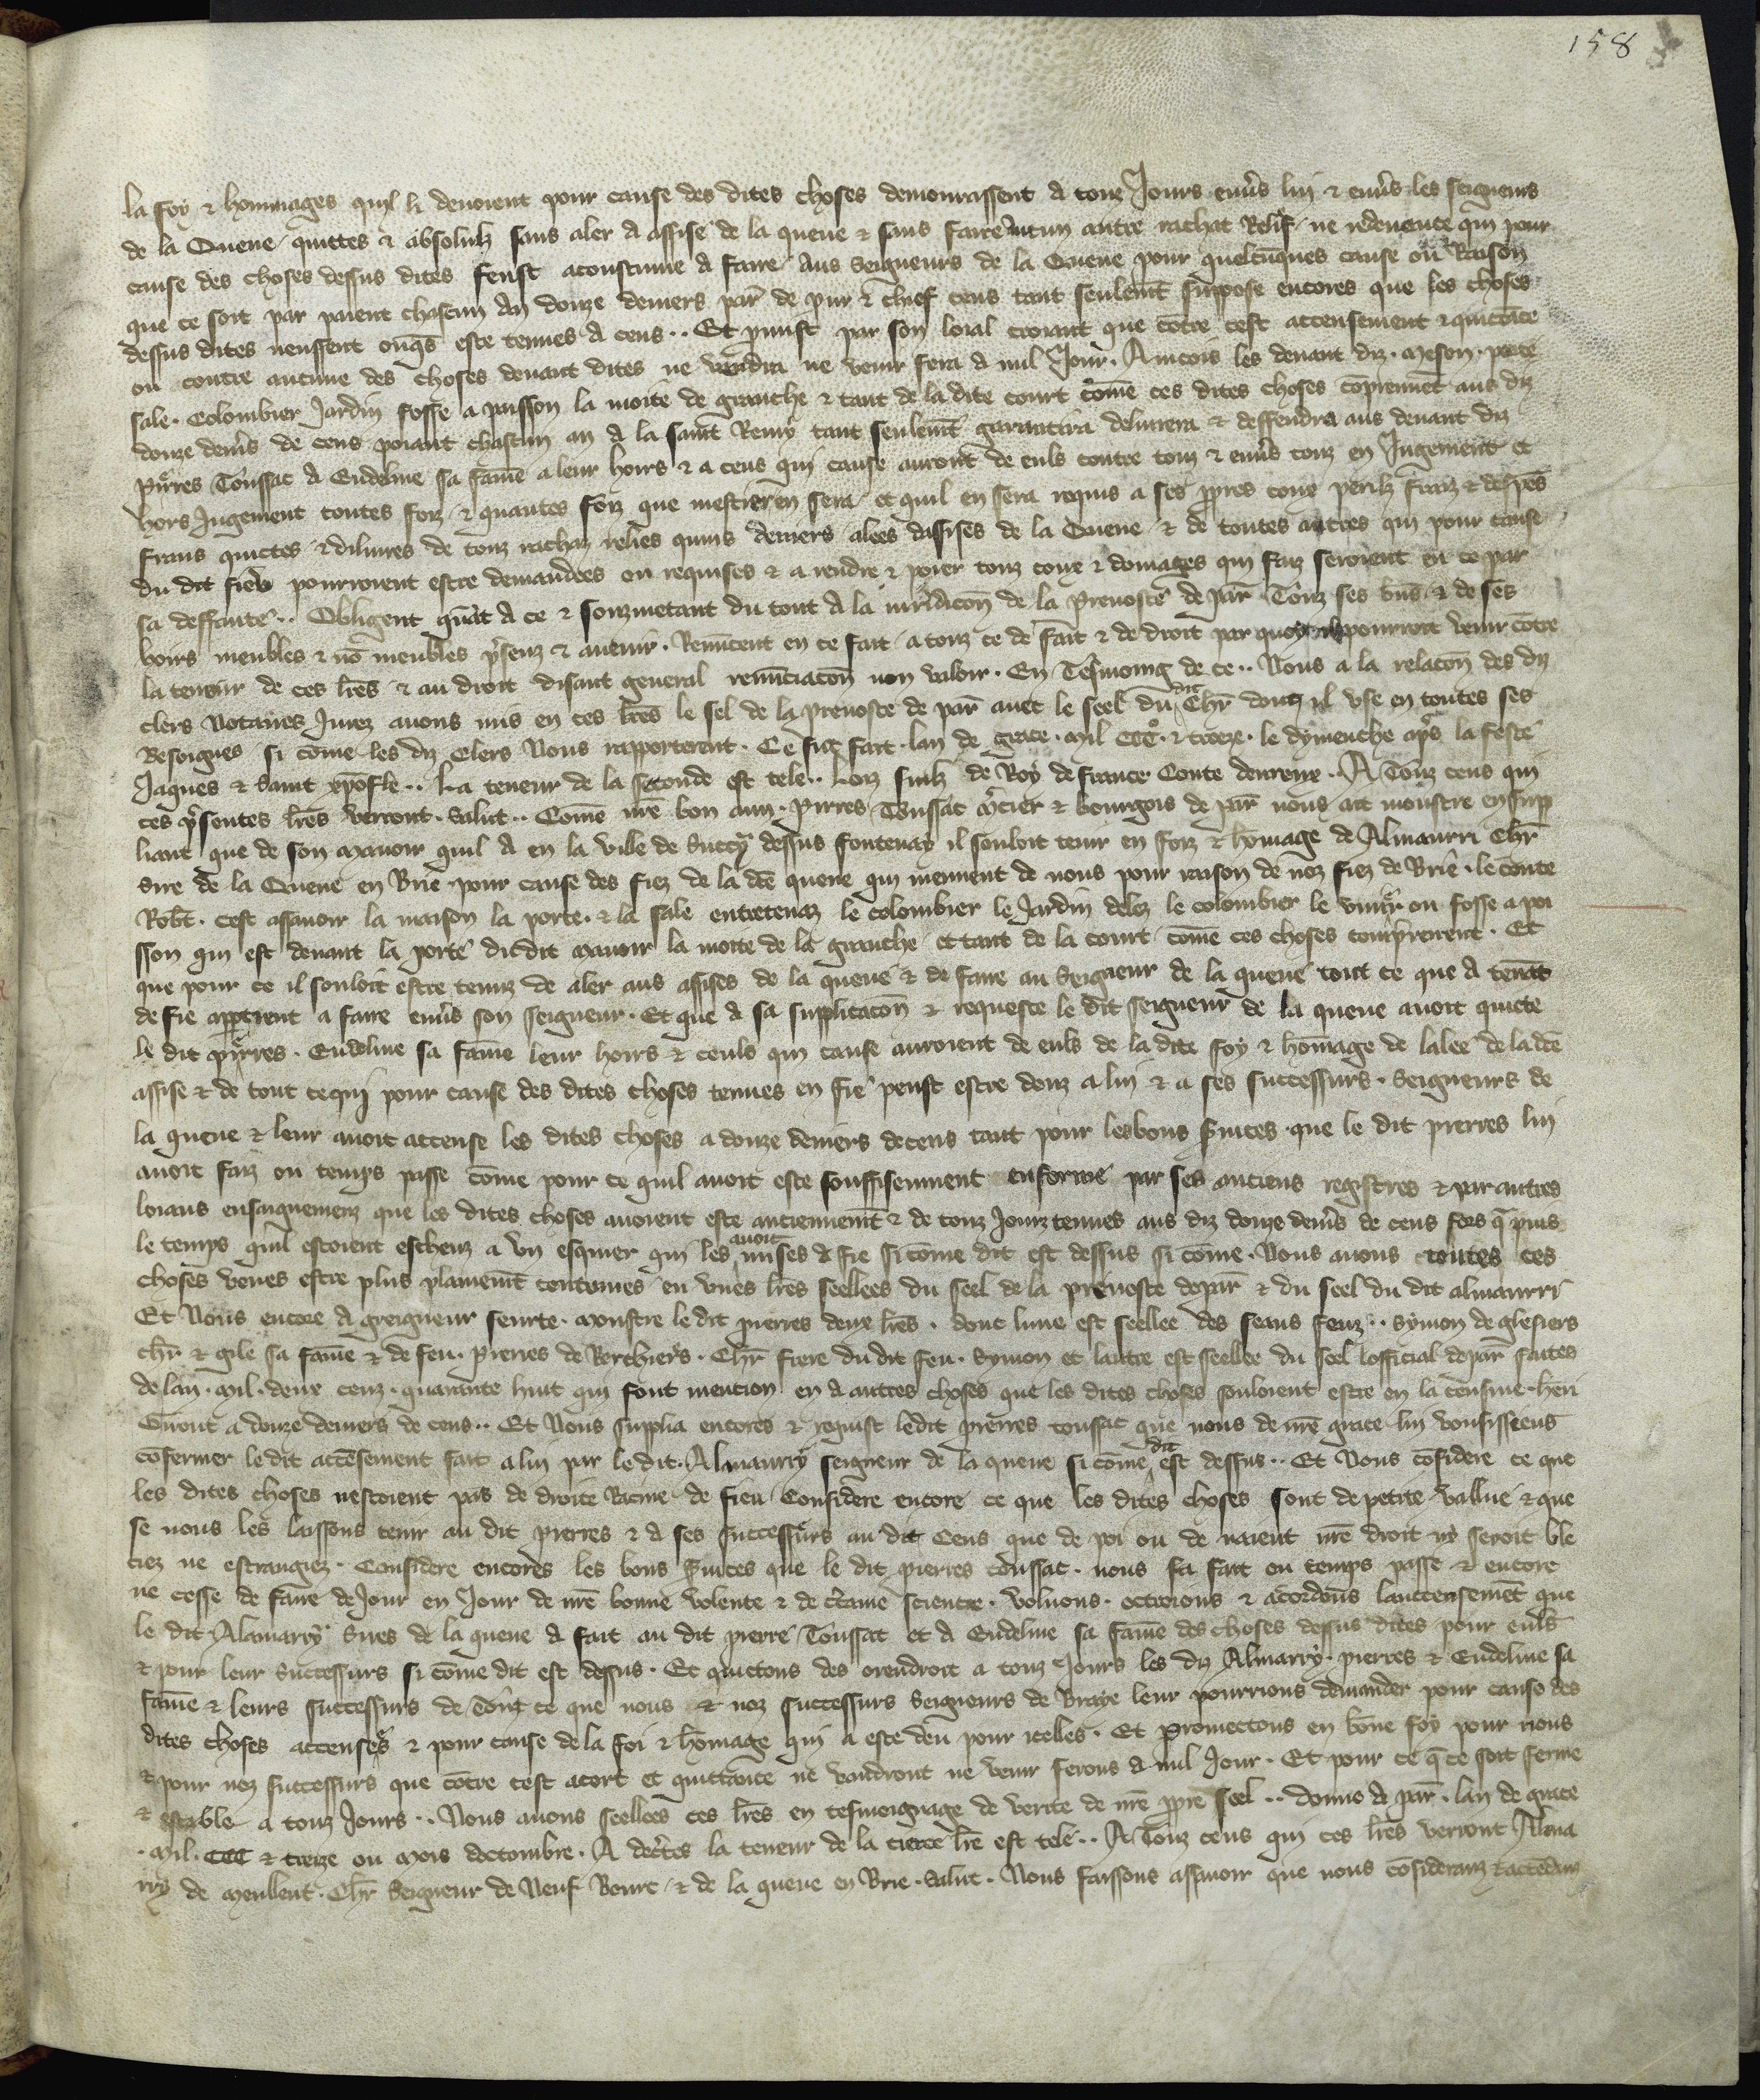 158
la foy & hommages quil li devoient pour cause des dites choses demourassent a touz Jours env̄s lui & env̄s les seigneurs
de la Queue quittes & absoluz sans aler a assise de la queue & sans faire autun autre rachat Relief ne redevence qui pour
cause des choses dessus dites feust acoustume a faire Aus Seigneurs de la Queue pour quelcūques cause ou Raison
que ce soit par paient chascun An douze deniers par̄ de pur & chief cens tant seulemēt supose encores que les choses
dessus dites neussent onq̄s este tenues a cens .. Et pmist par son loial creant que cōtre cest accensement & quittāce
ou contre aucune des choses devant dites ne vendra ne venir fera a nul Jour. Aincois les devant diz. meson. porte
sale. Colombier Jardin fosse a paisson la moite de granche & tant de la dite court cōme ces dites choses cōprennēt aus diz
douze den̄s de cens poiant chascun an a la saint Remy tant seulemēt garantira delivrera & deffendra aus devant diz
Pierres Toussac a Eudeline sa fame a leur hoirs & a ceus qui cause auront de euls contre touz & env̄s touz en Jugement et
hors Jugement toutes foiz & quantes foiz que mestier en sera et quil en sera requis a ses ppres couz perilz fraiz & despēs
frans quictes & delivres de touz rachaz reliés quins deniers alees dassises de la Queue & de toutes autres qui pour cause
du dit fiev pourroient estre demandees ou requises & a rendre & poier touz couz & domages qui faiz seroient en ce par
sa deffaute .. Obligent quāt a ce & souzmetant du tout a la iuridicōn de la Prevoste de par̄ Touz ses biēs & de ses
hoirs meubles & nō meubles p̄senz & avenir. Renūcent en ce fait a touz ce de fait & de droit par quoy il pourroit venir cōtre
la teneur de ces l̄res & au droit disant general renūciacōn non valoir. En Tesmoing de ce .. Nous a la relacōn des diz
clers Notaires Jurez avons mis en ces l̄res le seel de la prevoste de par̄ avec le seel du dit Chr̄ dont il use en toutes ses
Besoignes si cōme les diz Clers Nous rapporterent. Ce fu fait. lan de grace. Mil CCC. & treze. le dymenche ap̄s la feste
Jaques & Saint xp̄ofle .. La teneur de la seconde est tele .. Loiz fiulz de Roy de France Conte devreux .. A Touz ceus qui
ces p̄sentes l̄res verront. Salut .. Cōme n̄re bon ami. Pierres Toussac M̄cier & bourgois de par̄ nous ait monstre en supp
liant que de son Manoir quil a en la ville de Succy dessus fontenay il souloit tenir en foiz & homage de Almaurri Chr̄
Sire de la Queue en Brie pour cause des fiez de la dc̄e queue qui meuvent de nous pour raison de noz fiez de Brie. le conte
Rob̄t. Cest assavoir la maison la porte. & la sale entretenaz le colombier le Jardin delez le colombier le vivier ou fosse a poi
sson qui est devant la porte du dit manoir la moite de la granche et tant de la court cōme ces choses comprenent. Et
que pour ce il souloit estre tenuz de aler aus assises de la queue & de faire au Seigneur de la queue tout ce que a tenāt
de fie appartient a faire env̄s son seigneur. Et que a sa supplicacōn & requeste le dit seigneur de la queue avoit quicte
le dit pierres. Eudeline sa fame leur hoirs & ceuls qui cause auroient de euls de la dite foy & hōmage de lalee de la dc̄e
assise & de tout ce qui pour cause des dites choses tenues en fie peust estre deuz a lui & a ses successurs. Seigneurs de
la queue & leur avoit accense les dites choses a douze deniers de cens tant pour les bons s̄vices que le dit pierres lui
avoit faiz ou temps passe cōme pour ce quil avoit este souffisenment enforme par ses anciens registres & par autres
loiaus ensaignemenz que les dites choses avoient este anciennemēt & de touz Jourz tenues aus diz douze den̄s de cens fors q̄ puis
le temps quil estoient escheuz a un esquier qui les avoit mises a fie si cōme dit est dessus si cōme. Nous avons toutes ces
choses veues estre plus plainemēt contenues en unes l̄res seellees du seel de la prevoste de par̄ & du seel du dit almaurri
Et Nous encore a greigneur seurte. Monstre le dit pierres deux l̄res. dont lune est seellee des seaus feuz .. Symon de glesiers
chr̄ & gile sa fame & de feu. Pierres de Berchiers. Chr̄ frere du dit feu. Symon et lautre est seellee du seel lofficial de par̄ faites
de lan. Mil. deux cenz. quarante huit qui font mencion en a autres choses que les dites choses souloient estre en la censive. hēri
Gūout a douze deniers de cens .. Et Nous supplia encores & requist le dit pierres toussac que nous de n̄re grace lui vousissiens
cōfermer le dit accēsement fait a lui par le dit. Almaurry seigneur de la queue si cōme dit est dessus .. Et Nous cōsidere ce que
les dites choses nestoient pas de droite Racine de fieu Considere encore ce que les dites choses sont de petite vallue & que
se nous les laissons tenir au dit pierres & a ses successurs au dit Cens que de poi ou de naient n̄re droit ny seroit ble
ciez ne estrangiez. Considere encores les bons s̄vices que le dit pierres toussac. nous fa fait ou temps passe & encore
ne cesse de faire de Jour en Jour de n̄re bonne volente & de c̄taine science. Voluons. octroions & acordons lauccensemēt que
le dit Alamarry Sires de la queue a fait au dit pierre Toussac et a Eudeline sa fame des choses dessus dites pour euls
& pour leur Successurs si cōme dit est dessus. Et quictons des orendroit a touz Jours les diz Almarry. pierres & Eudeline sa
fame & leurs successurs de Tout ce que nous & noz successurs Seigneurs de Braye leur pourrions demander pour cause des
dites choses accenses & pour cause de la foi & hōmage qui a este deu pour icelles. Et promectons en bōne foy pour nous
& pour noz successurs que cōtre cest acort et quittance ne vandront ne venir ferons a nul Jour. Et pour ce q̄ ce soit ferme
& estable a touz Jours .. Nous avons seellees ces l̄res en tesmoignage de verite de n̄re ppre seel .. donne a par̄. lan de grace
. Mil. CCC & treize ou mois doctombre. A dec̄tes la teneur de la tierce l̄re est tele .. A Touz ceus qui ces l̄res verront Alma
rry de Meullent. Chr̄ Seigneur de Neuf Bourc & de la queue en Brie. Salut. Nous faissons assavoir que nous cōsideranz & attendanz